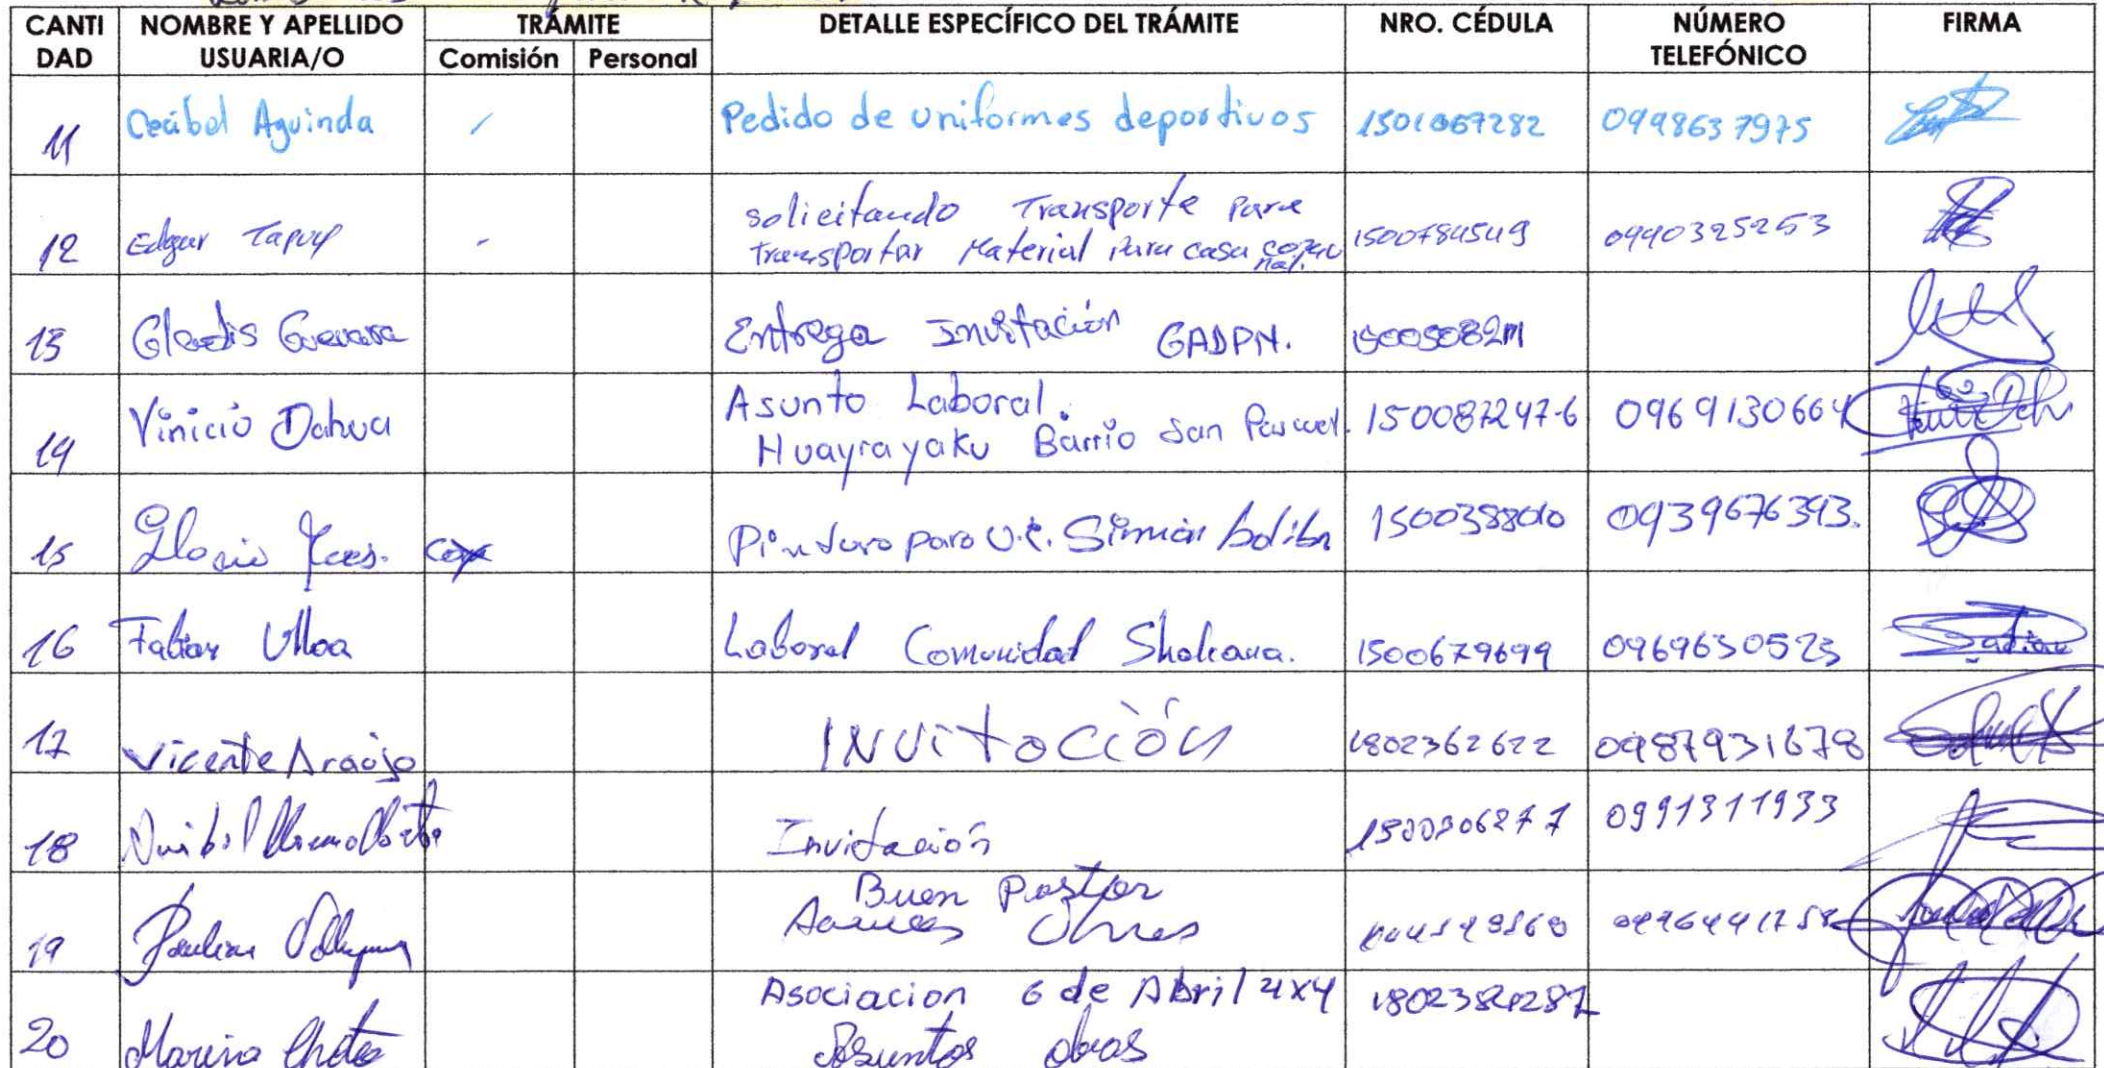 CANTI DAD NOMBRE Y APELLIDO USUARIA/O TRÁMITE Comisión Personal DETALLE ESPECÍFICO DEL TRÁMITE NRO. CÉDULA NÚMERO TELEFÓNICO FIRMA
11 Cecibel Aguinda / Pedido de uniformes deportivos 1501067282 0998637975
12 Edgar Tapuy - solicitando Transporte para
transportar Material para casa comu
nal. 1500784549 0990325253
13 Gladis Guevara Entrega Invitación GADPN.
14 Vinicio Dahua Asunto Laboral.
Huayrayaku Barrio San 150087247-6 0969130664
15 Pintura para U.E. Simón 1500388010 0939676393.
16 Fabian Ulloa Laboral Comunidad 1500679699 0969630523
17 Vicente Araujo INVITACIÓN 1802362622 0987931678
18 Invitación 0991311933
19 Buen Pastor
20 Asociacion 6 de Abril 4x4
Asuntos obras